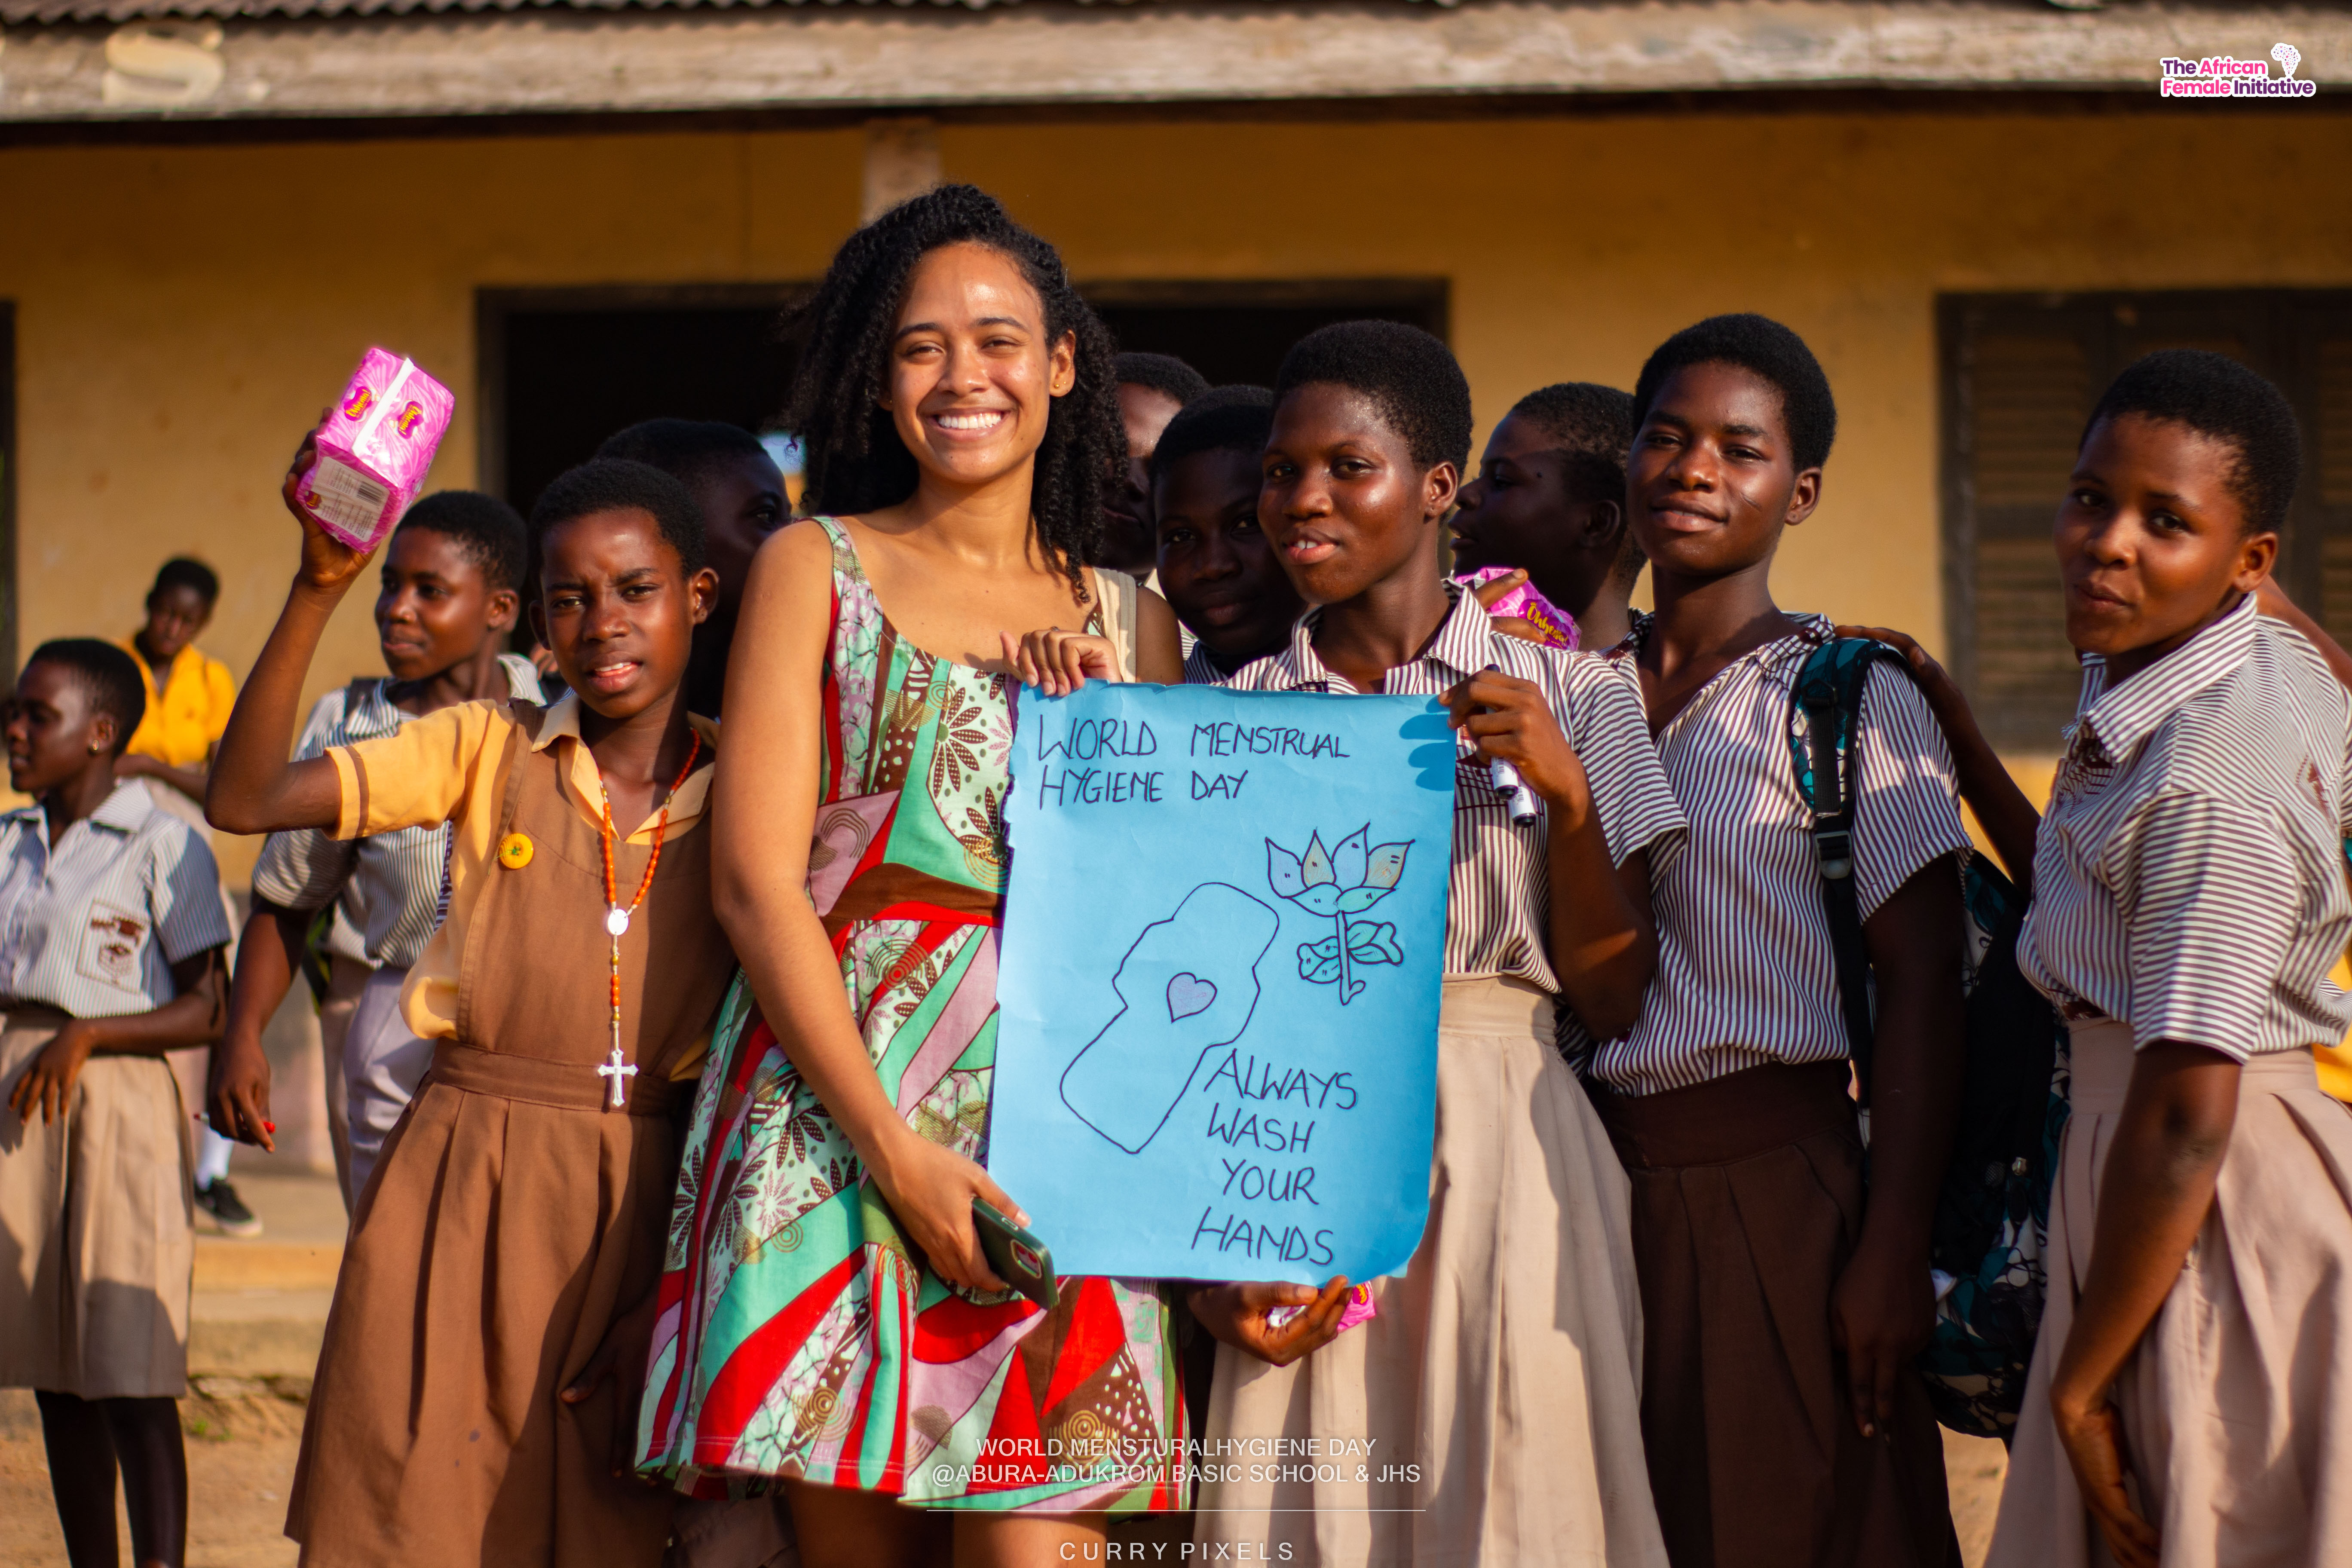 S
The African
Female Initiative
Ohhemaa
WORLD MENSTRUAL
HYGIENE DAY
ALWAYS
WASH
YOUR
HANDS
WORLD MENSTURALHYGIENE DAY
@ABURA-ADUKROM BASIC SCHOOL & JHS
CURRY PIXELS